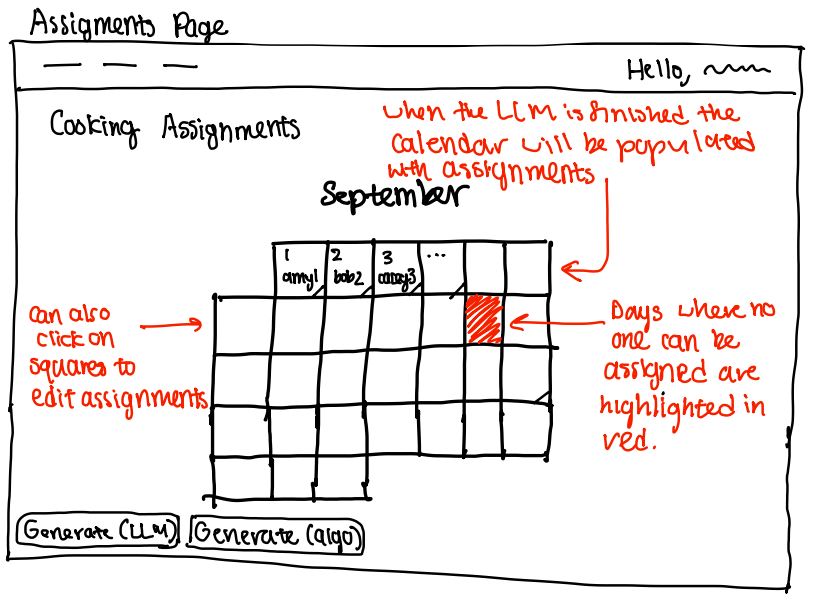 Assigments Page
Hello,
Cooking Assignments
when the LLM is finished the
calendar will be populated
with assignments
September
1
2
3
...
amy1
bob2
can also
click on
squares to
edit assignments
Days where no
one can be
assigned are
highlighted in
red.
Generate (LLM)
Generate (algo)